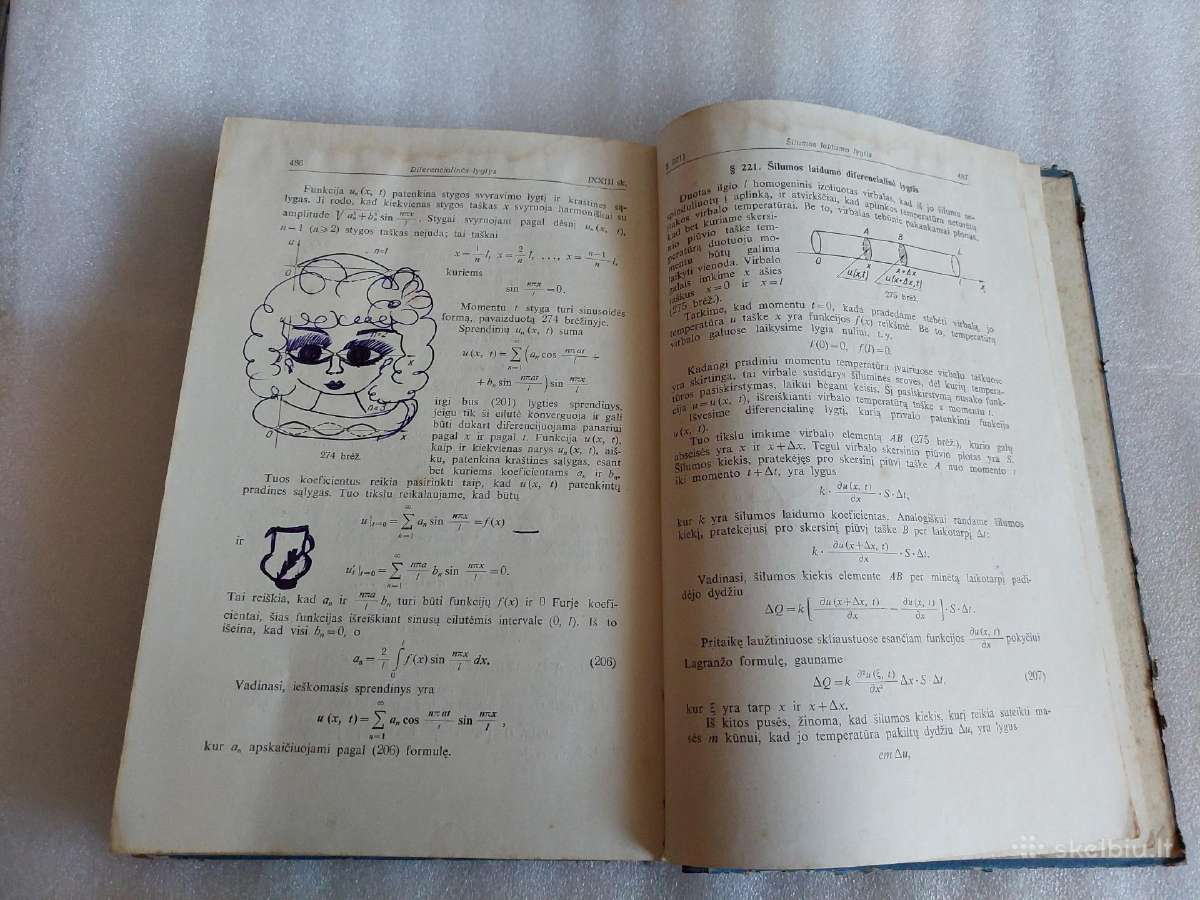 486
Diferencialinės lygtys
Funkcija uₙ (x, t) patenkina stygos svyravimo lygtį ir kraštines są-
lygas. Ji rodo, kad kiekvienas stygos taškas x svyruoja harmoniškai su
amplitude √a²ₙ+b²ₙ sin nπx/l. Stygai svyruojant pagal dėsnį uₙ (x, t),
n−1 (n⩾2) stygos taškas nejuda; tai taškai
x = 1/n l, x = 2/n l, ..., x = n−1/n l,
kuriems
sin nπx/l = 0.
Momentu t styga turi sinusoidės
formą, pavaizduotą 274 brėžinyje.
Sprendinių uₙ (x, t) suma
u (x, t) = ∑ (aₙ cos nπat/l +
+ bₙ sin nπat/l) sin nπx/l
irgi bus (201) lygties sprendinys,
jeigu tik ši eilutė konverguoja ir gali
būti dukart diferencijuojama panariui
pagal x ir pagal t. Funkcija u (x, t),
kaip ir kiekvienas narys uₙ (x, t), aiš-
ku, patenkina kraštines sąlygas, esant
bet kuriems koeficientams aₙ ir bₙ.
u
n=1
0
u
x
n=3
x
274 brėž.
Tuos koeficientus reikia pasirinkti taip, kad u (x, t) patenkintų
pradines sąlygas. Tuo tikslu reikalaujame, kad būtų
u|ₜ₌₀ = ∑ aₙ sin nπx/l = f (x)
ir
u′ₜ|ₜ₌₀ = ∑ nπa/l bₙ sin nπx/l = 0.
Tai reiškia, kad aₙ ir nπa/l bₙ turi būti funkcijų f (x) ir 0 Furje koefi-
cientai, šias funkcijas išreiškiant sinusų eilutėmis intervale (0, l). Iš to
išeina, kad visi bₙ = 0, o
aₙ = 2/l ∫₀ˡ f (x) sin nπx/l dx. (206)
Vadinasi, ieškomasis sprendinys yra
u (x, t) = ∑ aₙ cos nπat/l sin nπx/l,
kur aₙ apskaičiuojami pagal (206) formulę.
Šilumos laidumo lygtis
487
§ 221. Šilumos laidumo diferencialinė lygtis
Duotas ilgio l homogeninis izoliuotas virbalas, kad iš jo šilumo ne-
spinduliuotų į aplinką, ir atvirkščiai, kad aplinkos temperatūra neturėtų
įtakos virbalo temperatūrai. Be to, virbalas tebūnie pakankamai plonas,
kad bet kuriame skersi-
nio pjūvio taške tem-
peratūrą duotuoju mo-
mentu būtų galima
laikyti vienoda. Virbalo
galais imkime x ašies
taškus x = 0 ir x = l
(275 brėž.).
A B L
0 x x+Δx l x
u(x,t) u(x+Δx,t)
275 brėž.
Tarkime, kad momentu t=0, kada pradedame stebėti virbalą, jo
temperatūra u taške x yra funkcijos f (x) reikšmė. Be to, temperatūrą
virbalo galuose laikysime lygia nuliui, t. y.
f (0) = 0, f (l) = 0.
Kadangi pradiniu momentu temperatūra įvairiuose virbalo taškuose
yra skirtinga, tai virbale susidarys šiluminės srovės, dėl kurių tempera-
tūros pasiskirstymas, laikui bėgant keisis. Šį pasiskirstymą nusako funk-
cija u = u (x, t), išreiškianti virbalo temperatūrą taške x momentu t.
Išvesime diferencialinę lygtį, kurią privalo patenkinti funkcija
u (x, t).
Tuo tikslu imkime virbalo elementą AB (275 brėž.), kurio galų
abscisės yra x ir x + Δx. Tegul virbalo skersinio pjūvio plotas yra S.
Šilumos kiekis, pratekėjęs pro skersinį pjūvį taške A nuo momento t
iki momento t + Δt, yra lygus
k · ∂u (x, t)/∂x · S · Δt,
kur k yra šilumos laidumo koeficientas. Analogiškai randame šilumos
kiekį, pratekėjusį pro skersinį pjūvį taške B per laikotarpį Δt:
k · ∂u (x+Δx, t)/∂x · S · Δt.
Vadinasi, šilumos kiekis elemente AB per minėtą laikotarpį padi-
dėjo dydžiu
ΔQ = k [∂u (x+Δx, t)/∂x − ∂u (x, t)/∂x] · S · Δt.
Pritaikę laužtiniuose skliaustuose esančiam funkcijos ∂u(x, t)/∂x pokyčiui
Lagranžo formulę, gauname
ΔQ = k ∂²u (ξ, t)/∂x² Δx · S · Δt, (207)
kur ξ yra tarp x ir x + Δx.
Iš kitos pusės, žinoma, kad šilumos kiekis, kurį reikia suteikti ma-
sės m kūnui, kad jo temperatūra pakiltų dydžiu Δu, yra lygus
cm Δu,
skelbiu.lt